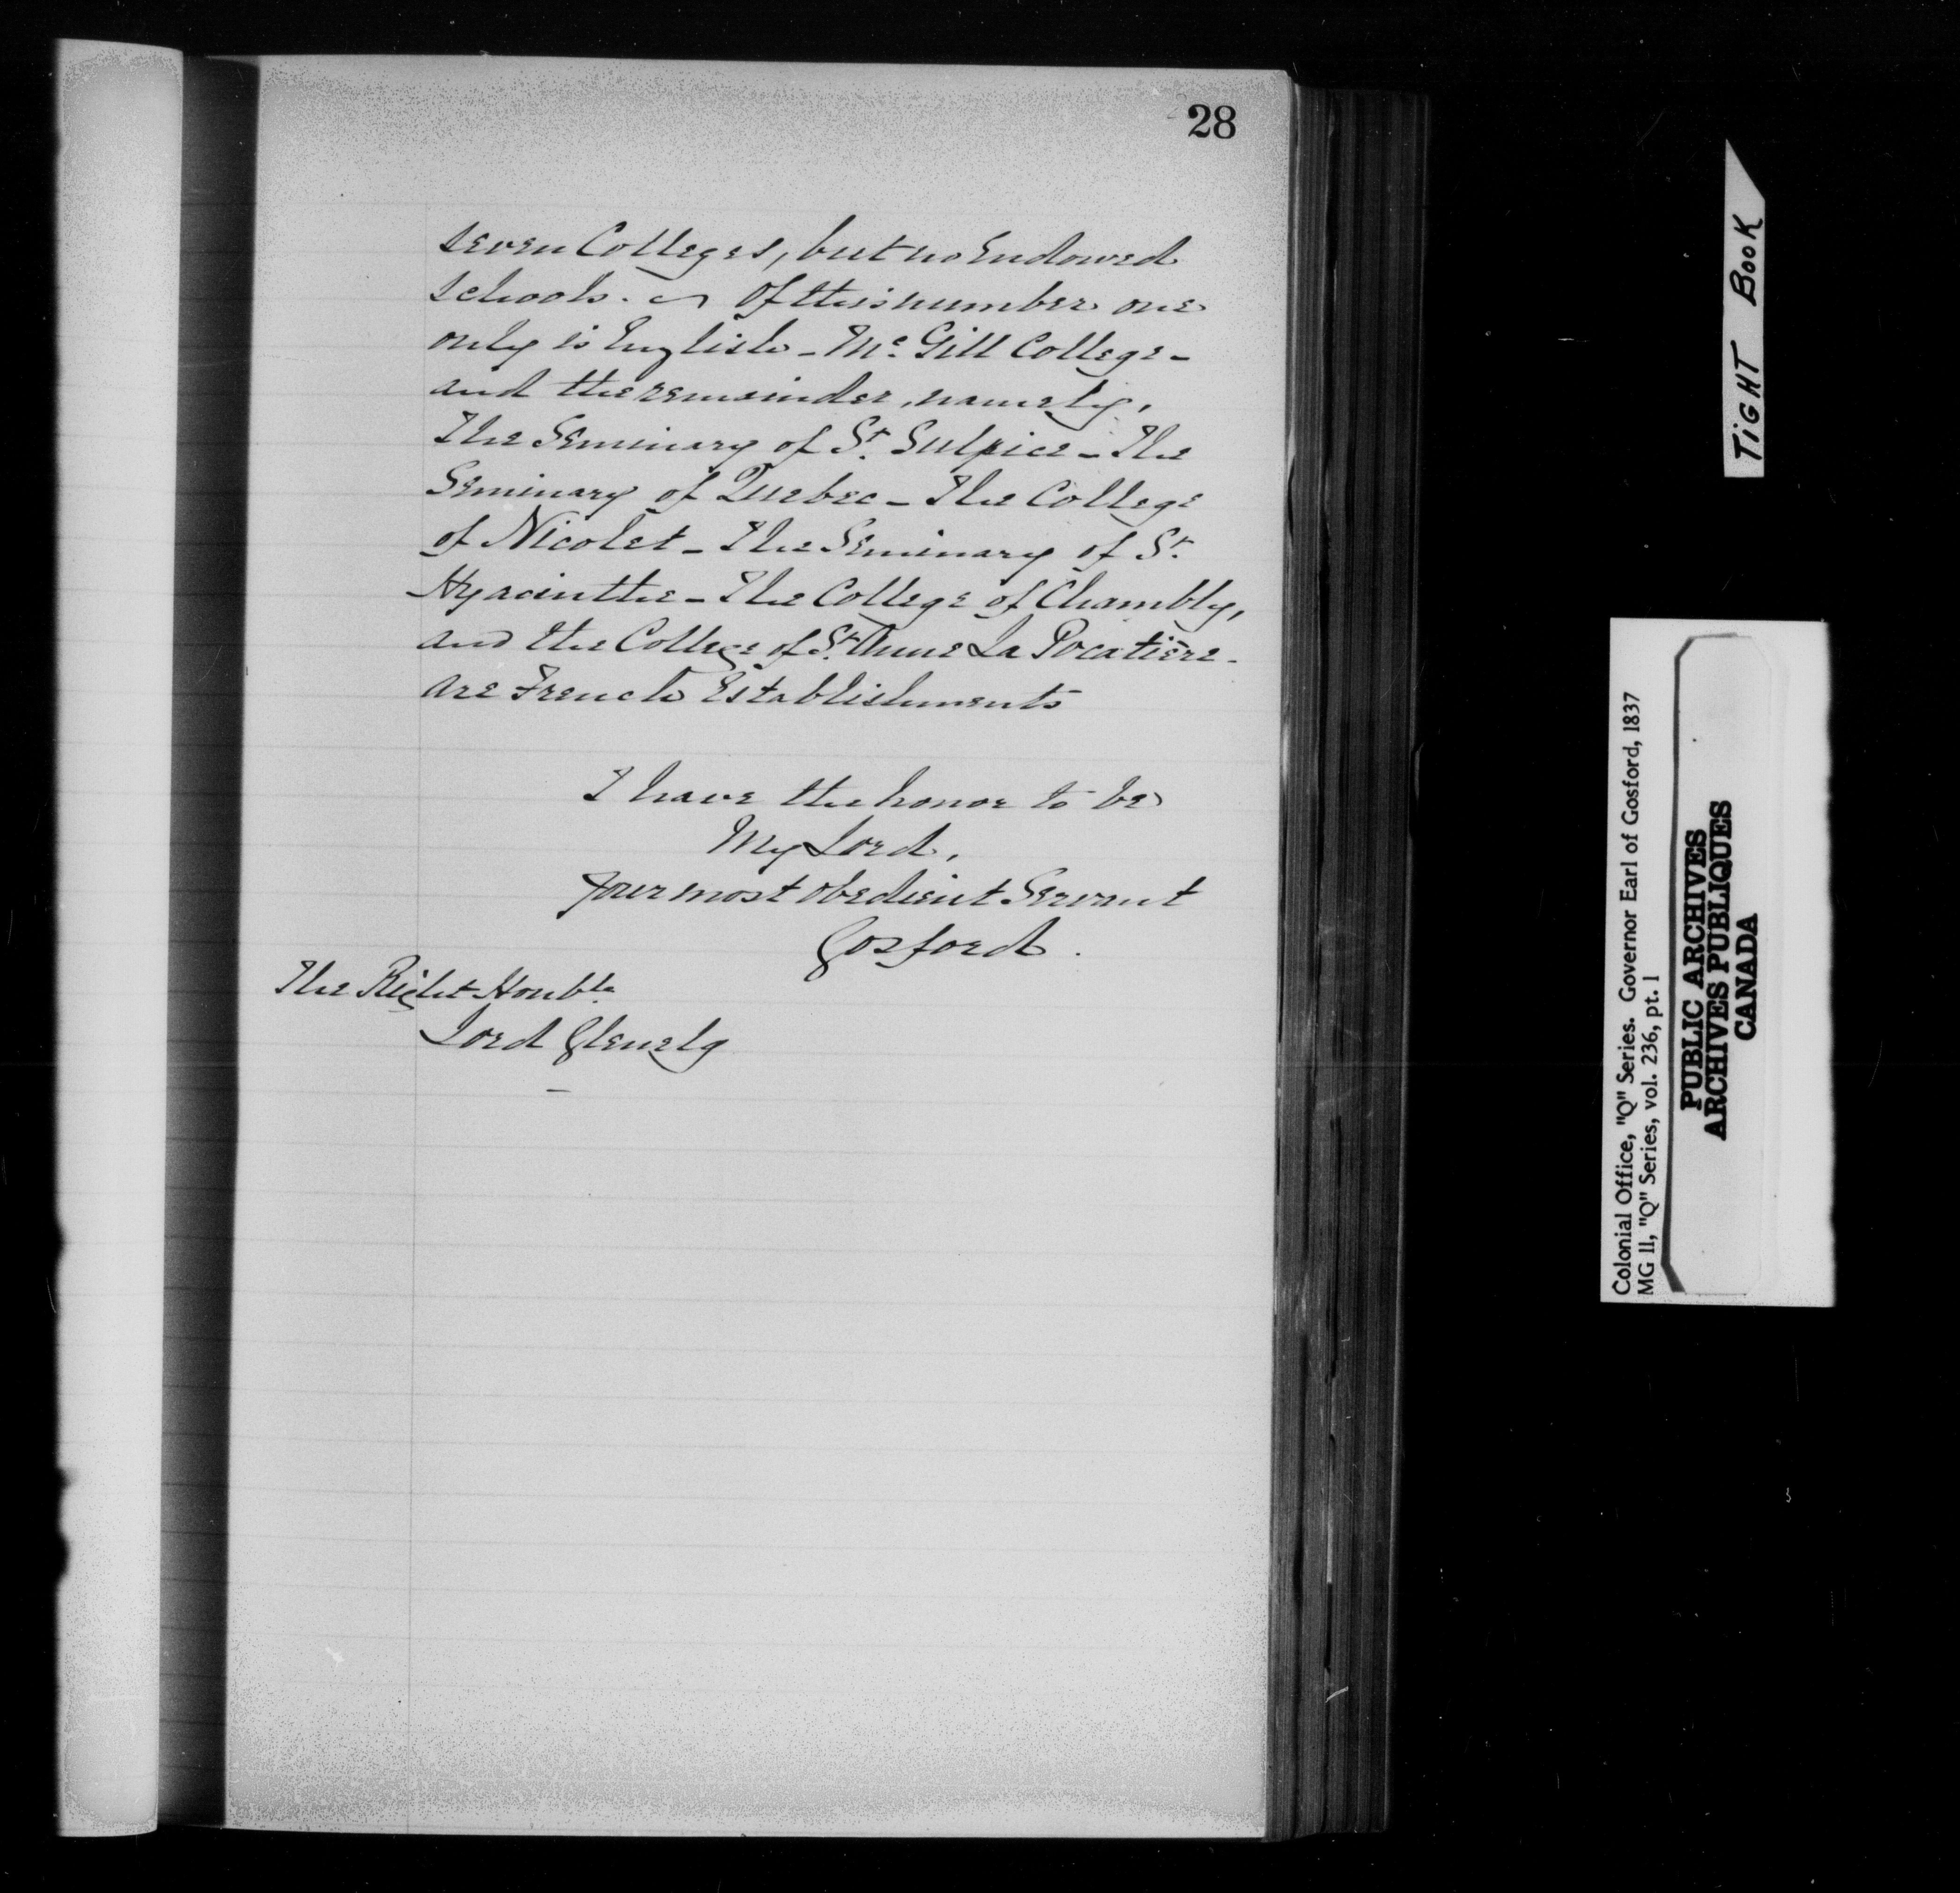 28
seven Colleges, but no Endowed
schools. Of this number one
only is English - Mc. Gill College -
and the remainder, namely,
The Seminary of St. Sulpice - The
Seminary of Quebec - The College
of Nicolet - The Seminary of St.
Hyacinthe - The College of Chambly,
and the College of St. Anne La Pocatière -
are French Establishments
I have the honor to be
My Lord,
Your most obedient Servant
Gosford.
The Right Honble.
Lord Glenelg
TIGHT BOOK
Colonial Office, "Q" Series. Governor Earl of Gosford, 1837
MG 11, "Q" Series, vol. 236, pt. 1
PUBLIC ARCHIVES
ARCHIVES PUBLIQUES
CANADA